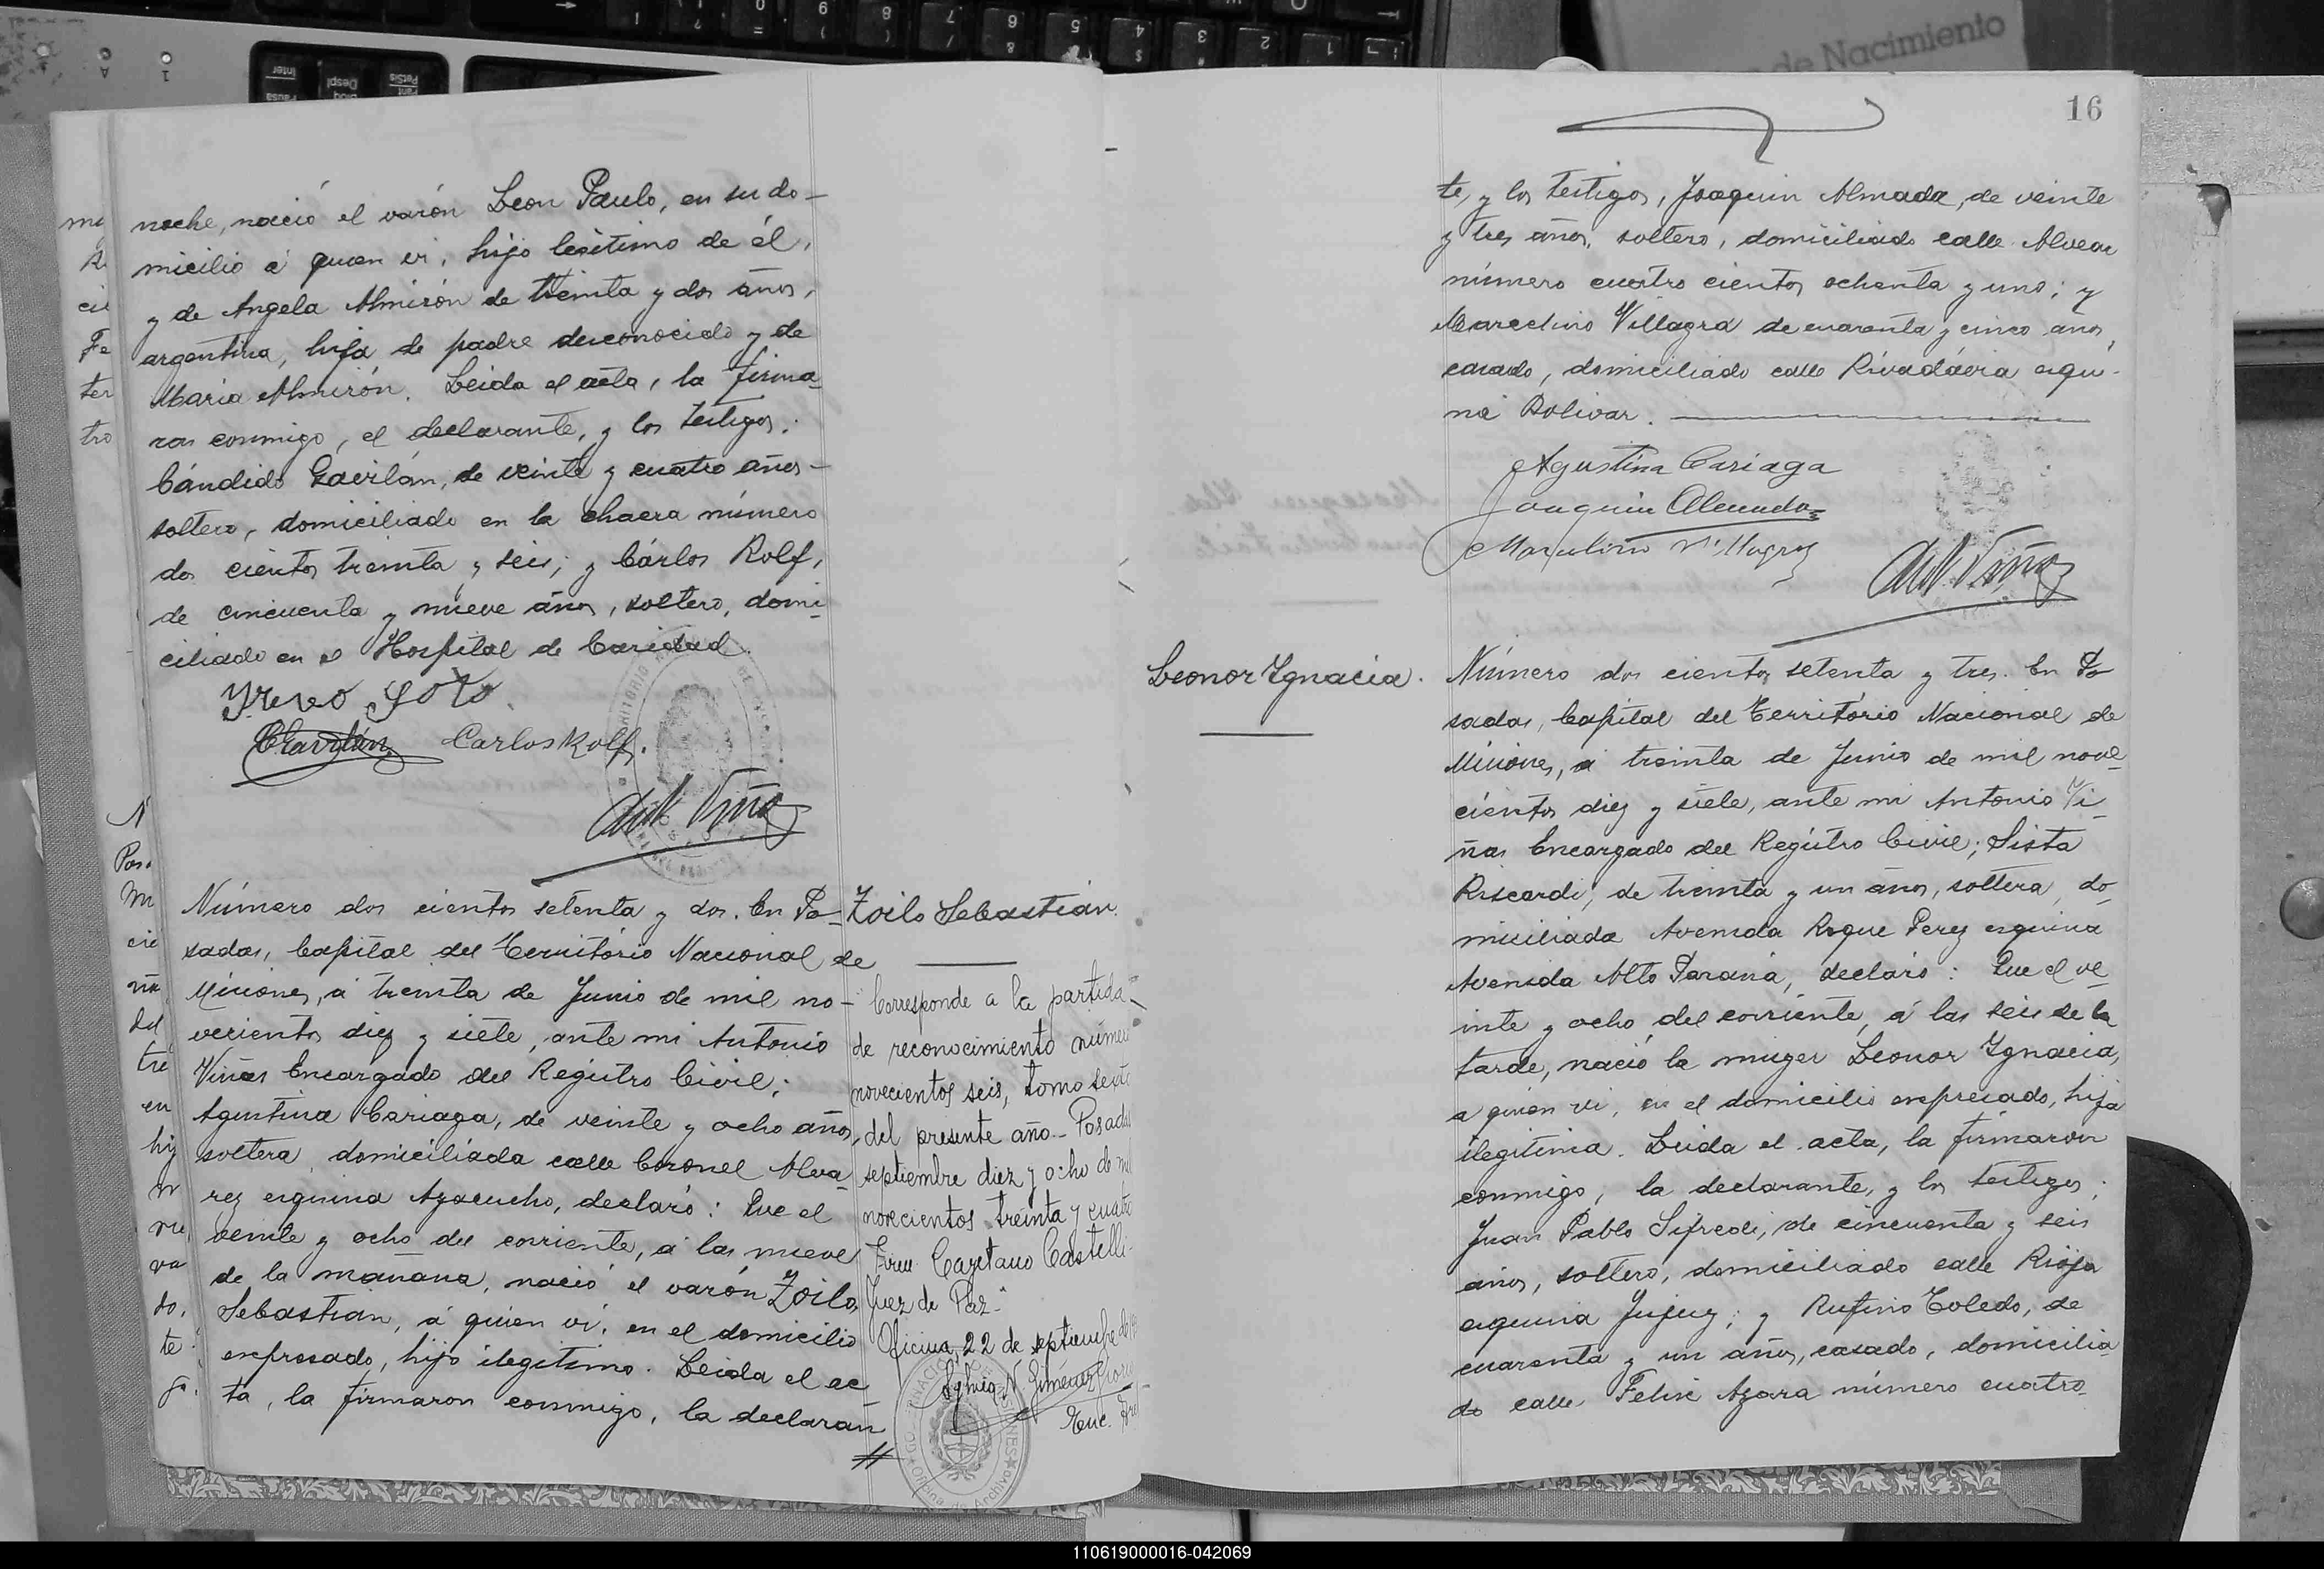 noche, nació el varón Leon Paulo, en su do-
micilio á quien vi, hijo legítimo de él,
y de Angela Almirón de treinta y dos años,
argentina, hija de padre desconocido y de
Maria Almirón. Leida el acta, la firma
ron conmigo, el declarante, y los testigos:
Cándido Gavilán, de veinte y cuatro años-
soltero, domiciliado en la chacra número
dos cientos treinta y seis; y Cárlos Rolf,
de cincuenta y nueve años, soltero, domi-
ciliado en el Hospital de Caridad.
Soto
CGavilán Carlos Rolf.
Ant Viñas
Número dos cientos setenta y dos. En Po-
sadas, Capital del Território Nacional de
Misiones, á treinta de Junio de mil no-
vecientos diez y siete, ante mi Antonio
Viñas Encargado del Registro Civil;
Agustina Cariaga, de veinte y ocho años,
soltera, domiciliada calle Coronel Alva-
rez esquina Ayacucho, declaró: Que el
veinte y ocho del corriente, á las nueve
de la mañana, nació el varón Zoilo
Sebastián, á quien vi, en el domicilio
expresado, hijo ilegítimo. Leida el ac
ta, la firmaron conmigo, la declaran
//
Zoilo Sebastián.
Corresponde a la partida
de reconocimiento número
novecientos seis, tomo sexto
del presente año.- Posadas
septiembre diez y ocho de mil
novecientos treinta y cuatro
Cayetano Castelli-
Juez de Paz-
Oficina, 22 de septiembre de
N. Giménez
Enc.
16
te, y los testigos, Joaquin Almada, de veinte
y tres años, soltero, domiciliado calle Alvear
número cuatro cientos ochenta y uno; y
Marcelino Villagra de cuarenta y cinco años,
casado, domiciliado calle Rivadávia esqui-
na Bolivar.
Agustina Cariaga
Joaquin Almada
Marcelino Villagra
Ant. Viñas
Leonor Ignacia.
Número dos cientos setenta y tres. En Po
sadas, Capital del Território Nacional de
Misiones, a treinta de Junio de mil nove-
cientos diez y siete, ante mi Antonio Vi-
ñas Encargado del Registro Civil; Sista
Riscardi, de treinta y un años, soltera, do-
miciliada Avenida Roque Perez esquina
Avenida Alto Paraná, declaró: Que el ve-
inte y ocho del corriente, á las seis de la
tarde, nació la muger Leonor Ignacia,
a quien vi, en el domicilio expresado, hija
ilegítima. Leida el acta, la firmaron
conmigo, la declarante, y los testigos;
Juan Pablo Sifredi, de cincuenta y seis
años, soltero, domiciliado calle Rioja
esquina Jujuy; y Rufino Toledo, de
cuarenta y un años, casado, domicilia
do calle Felix Azara número cuatro-
110619000016-042069